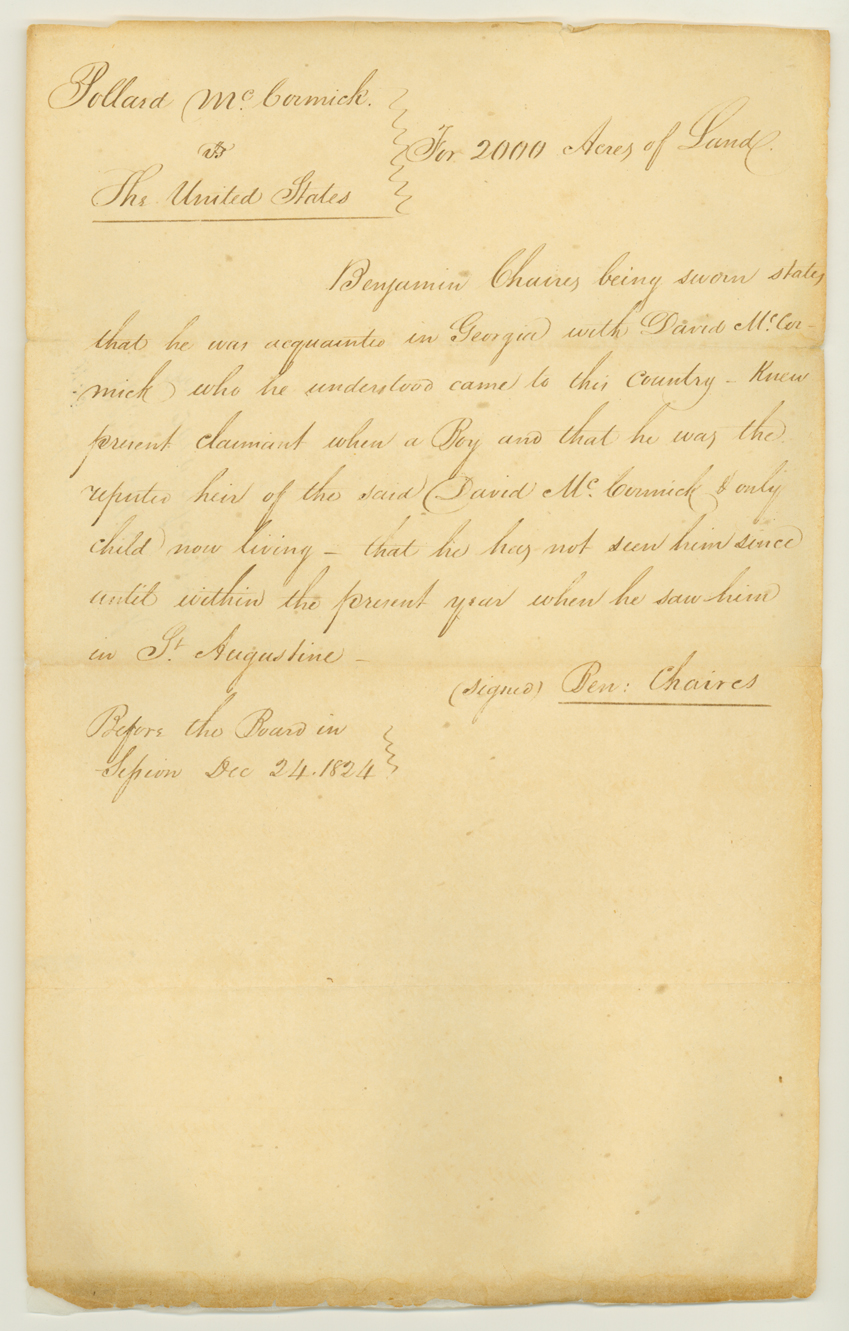 Pollard Mc. Cormick.
vs
For 2000 Acres of Land.
The United States
Benjamin Chaires being sworn states
that he was acquainted in Georgia with David Mc. Cor-
mick who he understood came to this Country - Knew
present claimant when a Boy and that he was the
reputed heir of the said David Mc. Cormick & only
child now living - that he has not seen him since
until within the present year when he saw him
in St. Augustine -
(signed) Ben: Chaires
Before the Board in
Session Dec 24. 1824